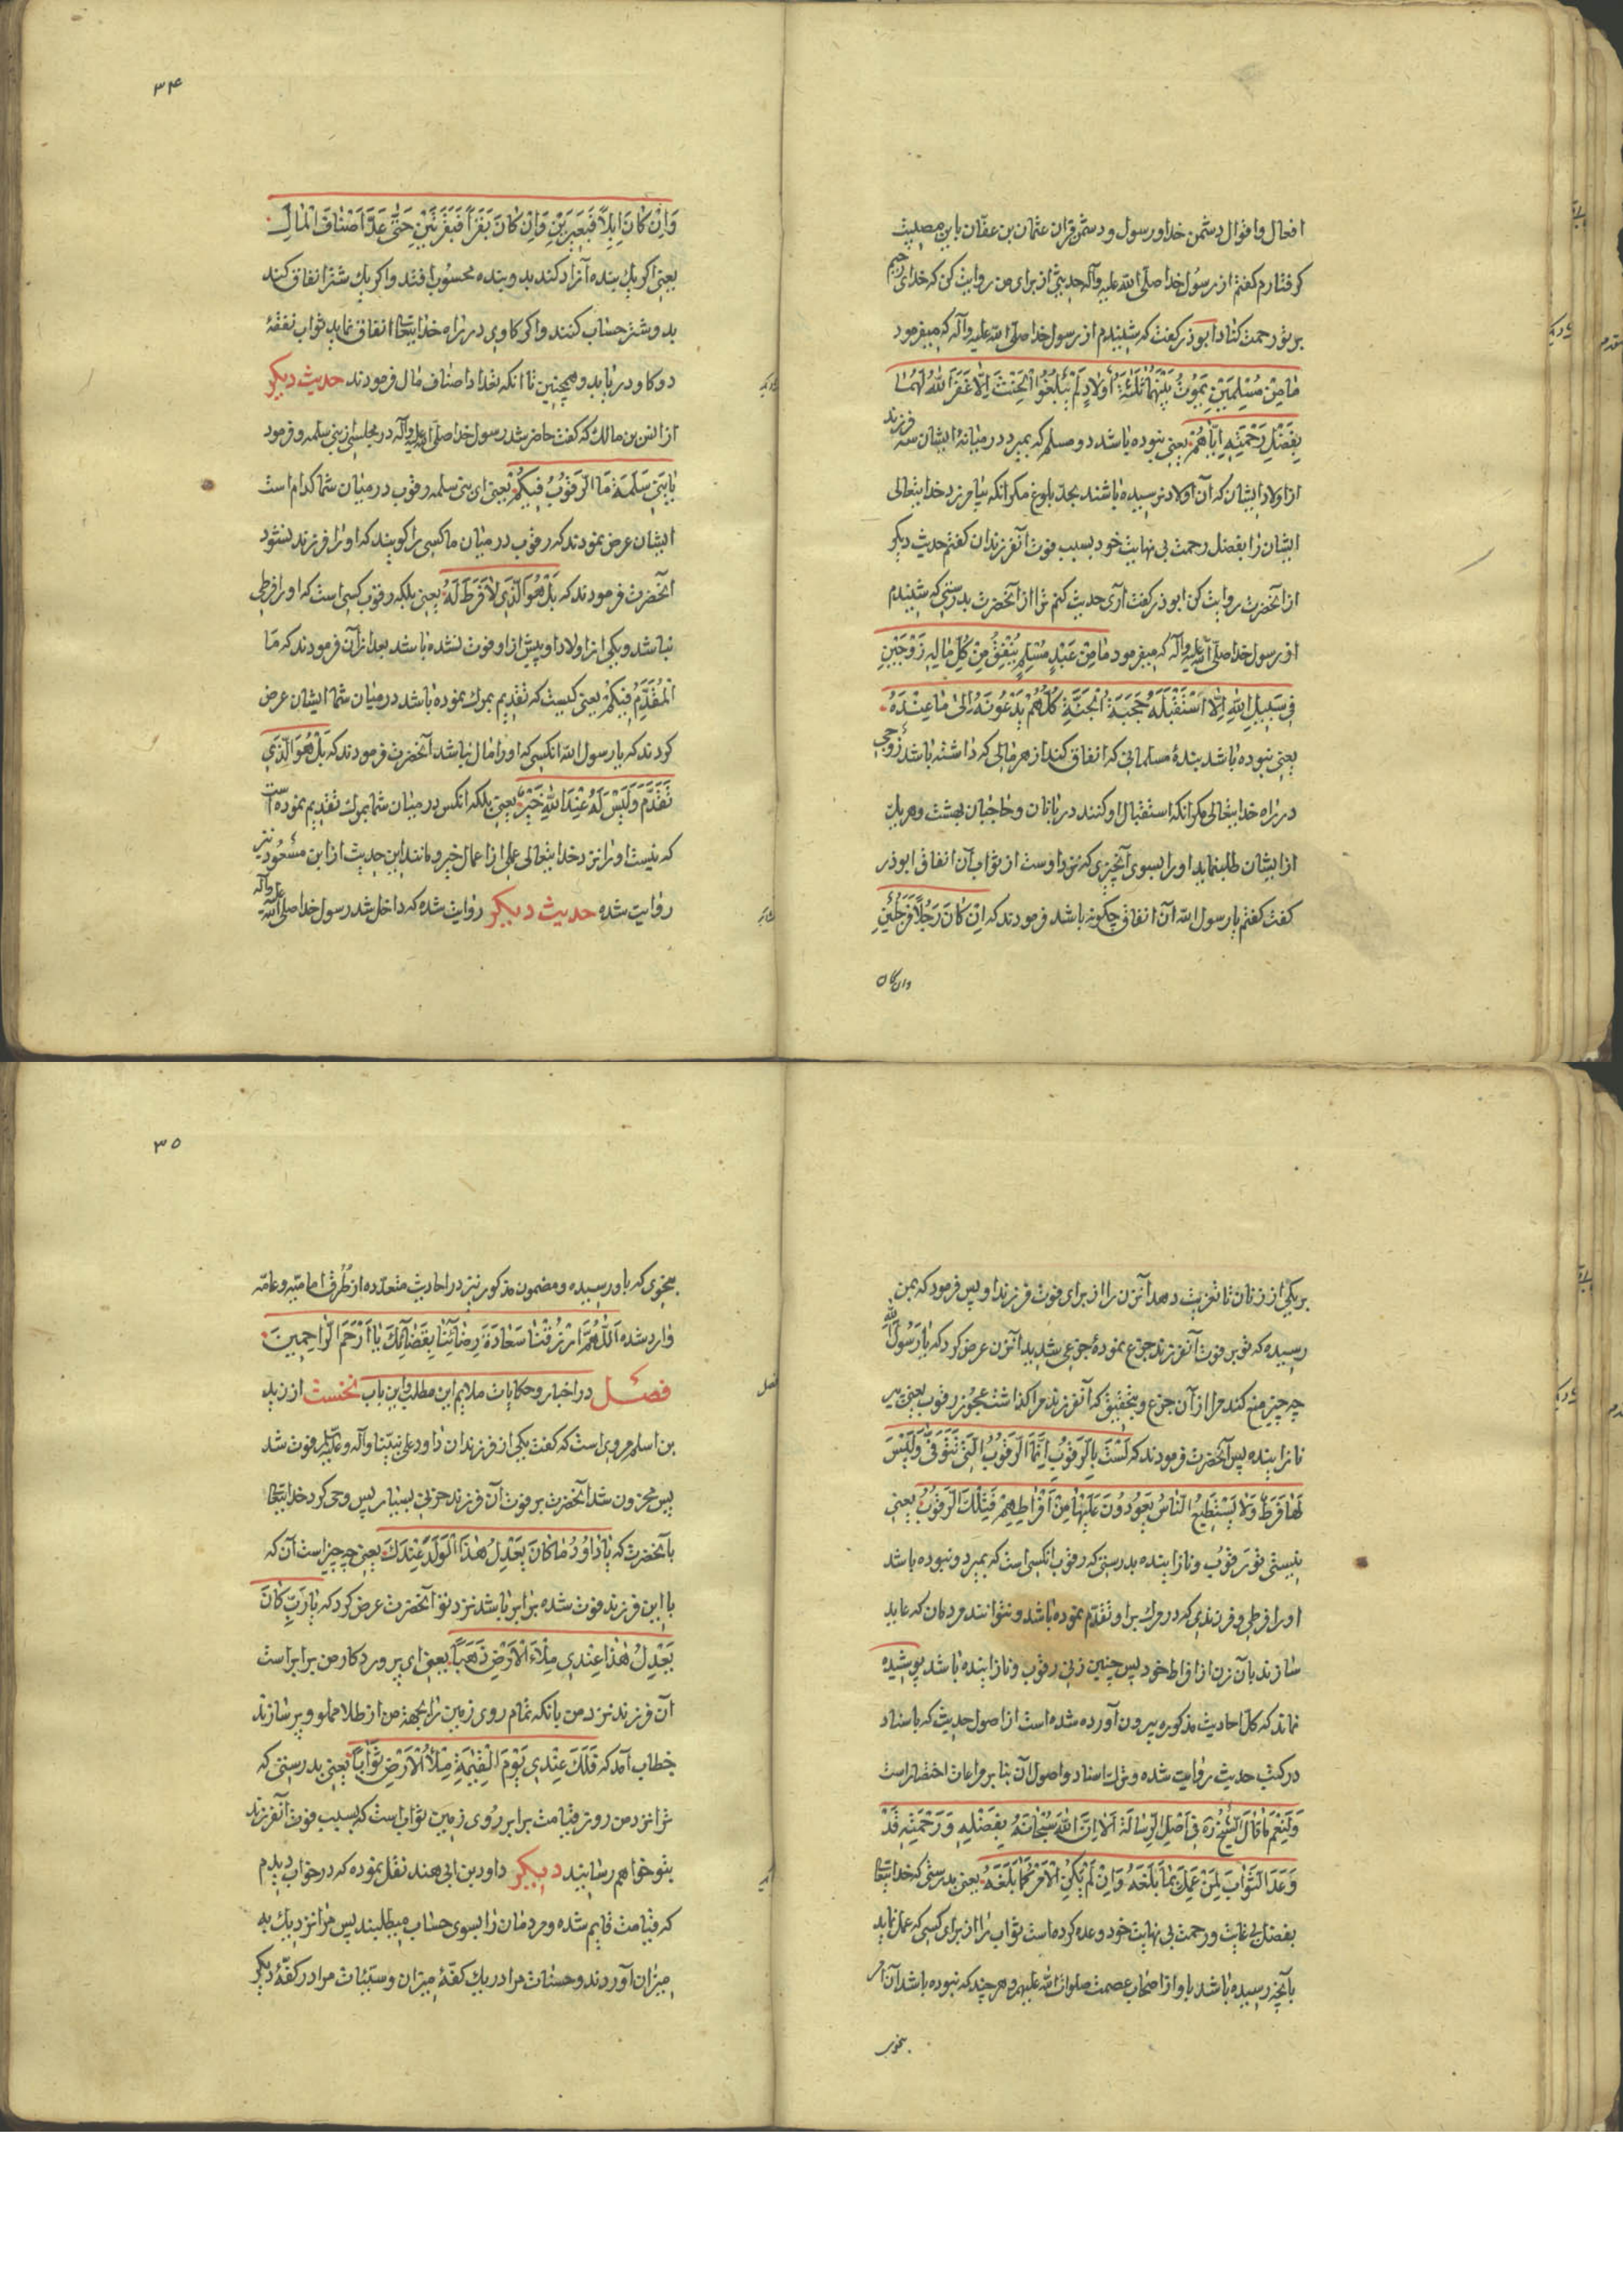 افعال و اقوال دشمن خدا و رسول و دشمن قران عثمان بن عفان باین مصیبت
کرفتارم کفتم از رسول خدا صلی الله علیه وآله حدیثی از برای من روایت کن که خدای رحیم
بر تو رحمت کناد ابوذر کفت که شنیدم از رسول خدا صلی الله علیه وآله که میفرمود
مٰا مِنْ مُسْلِمَیْنِ یَمُوتُ بَیْنَهُمٰا ثَلٰثَةُ اَوْلٰادٍ لَمْ یَبْلُغُوا الْحِنْثَ اِلّٰا غَفَرَ اللهُ لَهُمٰا
بِفَضْلِ رَحْمَتِهِ اِیّٰاهُمْ یعنی نبوده باشد دو مسلم که بمیرد در میانهٔ ایشان سه فرزند
از اولاد ایشان که آن اولاد نرسیده باشند بحد بلوغ مکر انکه بیامرزد خدایتعالی
ایشان را بفضل رحمت بی نهایت خود بسبب فوت آنفرزندان کفتم حدیث دیکر
از آنحضرت روایت کن ابوذر کفت آری حدیث کنم ترا از آنحضرت بدرستی که شنیدم
از رسول خدا صلی الله علیه وآله که میفرمود مٰا مِنْ عَبْدٍ مُسْلِمٍ یُنْفِقُ مِنْ کُلِّ مٰالِهِ زَوْجَیْنِ
فِی سَبِیلِ اللهِ اِلّٰا اسْتَقْبَلَهُ حَجَبَةُ الْجَنَّةِ کُلُّهُمْ یَدْعُونَهُ اِلیٰ مٰا عِنْدَهُ
یعنی نبوده باشد بندهٔ مسلمانی که انفاق کند از هر مالی که داشته باشد زوجی
در راه خدایتعالی مکر انکه استقبال او کنند دربانان و حاجبان بهشت و هر یک
از ایشان طلب نماید او را بسوی آنچیزی که نزد اوست از ثواب آن انفاق ابوذر
کفت کفتم یا رسول الله آن انفاق چکونه باشد فرمودند که اِنْ کٰانَ رَجُلاً فَرَجُلَیْنِ
وان کان
۳۴
وَاِنْ کٰانَ اِبِلاً فَبَعِیرَیْنِ وَاِنْ کٰانَ بَقَراً فَبَقَرَتَیْنِ حَتّیٰ عَدَّ اَصْنٰافَ الْمٰالِ
یعنی اکر یک بنده آزاد کند بدو بنده محسوب افتد و اکر یک شتر انفاق کند
بدو شتر حساب کنند و اکر کاوی در راه خدایتعا انفاق نماید ثواب نفقهٔ
دو کاو دریابد و همچنین تا انکه تعداد اصناف مال فرمودند حدیث دیکر
از انس بن مالک که کفت حاضر شد رسول خدا صلی الله علیه وآله در مجلسی از بنی سلمه و فرمود
یٰا بَنِی سَلَمَةَ مَا الرَّقُوبُ فِیکُمْ یعنی ای بنی سلمه رقوب در میان شما کدام است
ایشان عرض نمودند که رقوب در میان ما کسی را کویند که او را فرزند نشود
آنحضرت فرمودند که بَلْ هُوَ الَّذِی لٰا فَرَطَ لَهُ یعنی بلکه رقوب کسی است که او را فرطی
نباشد و یکی از اولاد او پیش از او فوت نشده باشد بعد از آن فرمودند که مَا
الْمُقَدِّمُ فِیکُمْ یعنی کیست که تقدیم بموت نموده باشد در میان شما ایشان عرض
کردند که یا رسول الله انکسی که او را مال نباشد آنحضرت فرمودند که بَلْ هُوَ الَّذِی
تَقَدَّمَ وَلَیْسَ لَهُ عِنْدَ اللهِ خَیْرٌ یعنی بلکه انکس در میان شما بموت تقدیم نموده است
که نیست او را نزد خدایتعالی عملی از اعمال خیر و مانند این حدیث از ابن مسعود نیز
روایت شده حدیث دیکر روایت شده که داخل شد رسول خدا صلی الله علیه وآله
بر یکی از زنان تا تعزیت دهد آنزن را از برای فوت فرزند او پس فرمود که بمن
رسیده که تو بر فوت آنفرزند جزع نمودهٔ جزعی شدید آنزن عرض کرد که یا رسول الله
چه چیز منع کند مرا از آن جزع و بتحقیق که آنفرزند مرا کذاشت عجوز رقوب یعنی پیر
نازاینده پس آنحضرت فرمودند که لَسْتِ بِالرَّقُوبِ اِنَّمَا الرَّقُوبُ الَّتِی تُتَوَفّیٰ وَلَیْسَ
لَهٰا فَرَطٌ وَلٰا یَسْتَطِیعُ النّٰاسُ یَعُودُونَ عَلَیْهٰا مِنْ اَفْرٰاطِهِمْ فَتِلْکَ الرَّقُوبُ یعنی
نیستی تو رقوب و نازاینده بدرستی که رقوب انکسی است که بمیرد و نبوده باشد
او را فرطی و فرزندی که در مرک بر او تقدم نموده باشد و نتوانند مردمان که عاید
سازند بآن زن از افراط خود پس چنین زنی رقوب و نازاینده باشد پوشیده
نماند که کل احادیث مذکوره بیرون آورده شده است از اصول حدیث که باسناد
در کتب حدیث روایت شده و ترک اسناد و اصول آن بنا بر مراعات اختصار است
وَلَنِعْمَ مٰا قٰالَ الشَّیْخُ رَه فِی اَصْلِ الرِّسٰالَةِ اَلٰا اِنَّ اللهَ سُبْحٰانَهُ بِفَضْلِهِ وَرَحْمَتِهِ قَدْ
وَعَدَ الثَّوٰابَ لِمَنْ عَمِلَ بِمٰا بَلَغَهُ وَاِنْ لَمْ یَکُنِ الْاَمْرُ کَمٰا بَلَغَهُ یعنی بدرستی که خدایتعا
بفضل بی غایت و رحمت بی نهایت خود وعده کرده است ثواب را از برای کسی که عمل نماید
بآنچه رسیده باشد باو از اصحاب عصمت صلوات الله علیهم و هر چند که نبوده باشد آن امر
بنحوی
۳۵
بنحوی که باو رسیده و مضمون مذکور نیز در احادیث متعدده از طُرق امامیه و عامه
وارد شده اَللّٰهُمَّ ارْزُقْنٰا سَعٰادَةَ رِضٰائِنٰا بِقَضٰائِکَ یٰا اَرْحَمَ الرّٰاحِمِینَ
فصل در اخبار و حکایات ملایم این مطلب و این باب نخست از زید
بن اسلم مروی است که کفت یکی از فرزندان داود علی نبینا وآله وعلیه لم فوت شد
پس محزون شد آنحضرت بر فوت آن فرزند حزنی بسیار پس وحی کرد خدایتعا
بآنحضرت که یٰا دٰاوُدُ مٰا کٰانَ یَعْدِلُ هٰذَا الْوَلَدُ عِنْدَکَ یعنی چه چیز است آن که
با این فرزند فوت شده برابر باشد نزد تو آنحضرت عرض کرد که یٰا رَبِّ کٰانَ
یَعْدِلُ هٰذٰا عِنْدِی مِلْاَءَ الْاَرْضِ ذَهَباً یعنی ای پروردکار من برابر است
آن فرزند نزد من بانکه تمام روی زمین را بجهة من از طلا مملو و پر سازند
خطاب آمد که فَلَکَ عِنْدِی یَوْمَ الْقِیٰمَةِ مِلْاُ الْاَرْضِ ثَوٰاباً یعنی بدرستی که
ترا نزد من روز قیامت برابر روی زمین ثواب است که بسبب فوت آنفرزند
بتو خواهم رسانید دیکر داود بن ابی هند نقل نموده که در خواب دیدم
که قیامت قایم شده و مردمان را بسوی حساب میطلبند پس مرا نزدیک به
میزان آوردند و حسنات مرا در یک کفّهٔ میزان و سیئات مرا در کفّهٔ دیکر